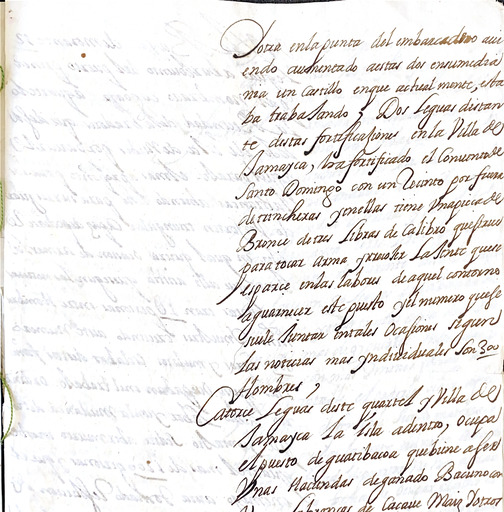 Jotra en la punta del embarcadero avi
endo aumentado aestas dos ensumedia
nia un Castillo enque actualmente, esta
ba trabajando, Dos leguas destan
te destas fortificasiones en la Villa de
Jamayca, ha fortificado el Convento de
Santo Domingo con un Recinto por fuera
de trincheras yenellas tiene Unapieca de
Bronce detres Libras de Calibro quesirve
para tocar arma y recoger La Gente quese
esparce en las labores de aquel contorno
aguarnecer este puesto y el numero quese
suele Juntar entales Ocasiones segun
las noticias mas yndividuales Son 300
Hombres,
Catorce Leguas deste quartel y Villa de
Jamayca La Isla adentro, ocupa
el puesto de guatibacoa quebiene aser
Unas Haciendas deganado Bacuno con
Labrancas de Cacave Maiz Yotros